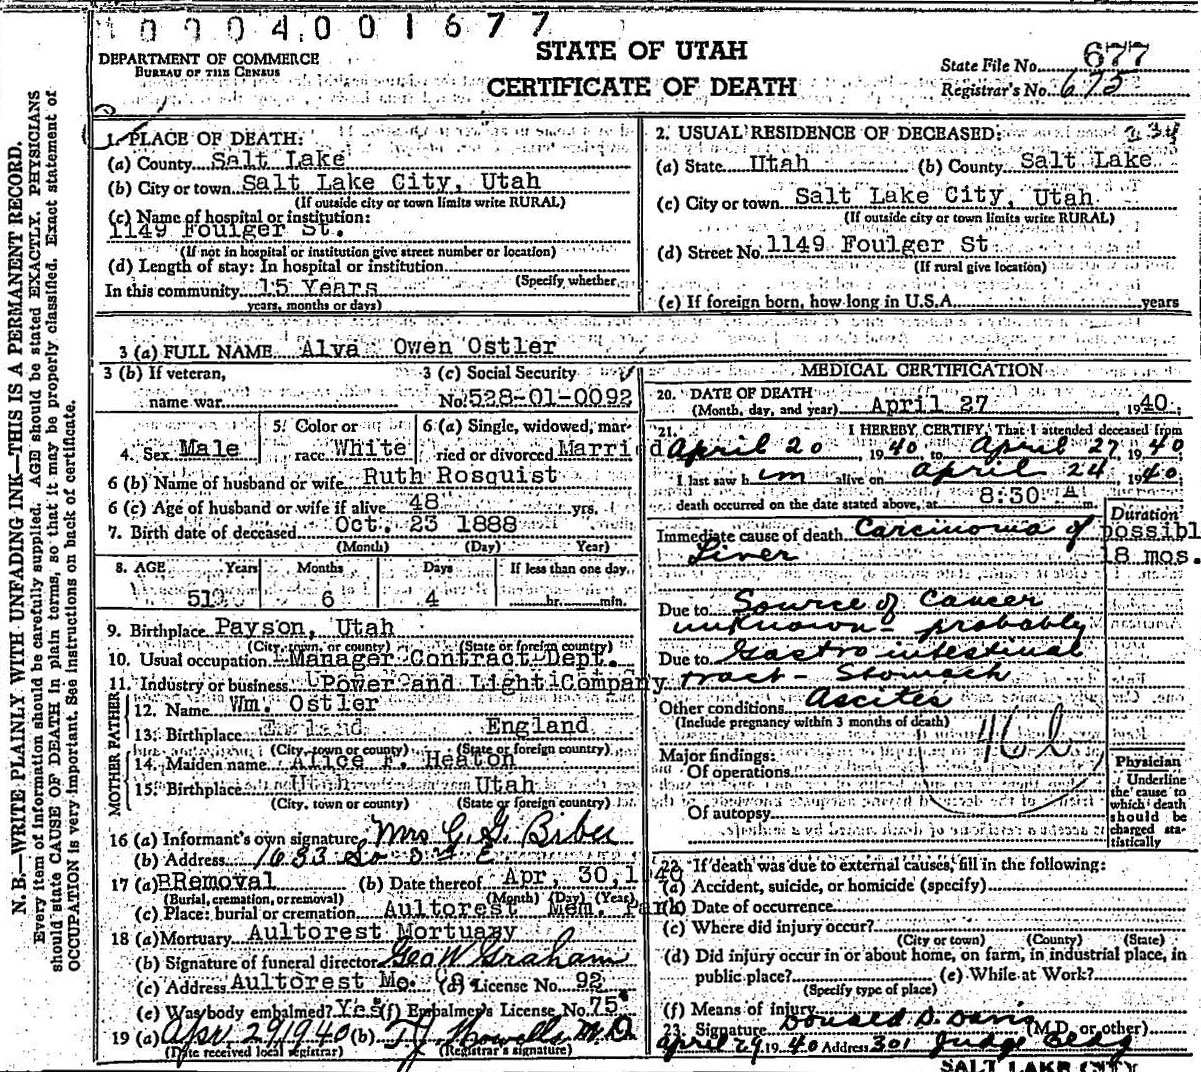 0004001677
DEPARTMENT OF COMMERCE
BUREAU OF THE CENSUS
STATE OF UTAH
CERTIFICATE OF DEATH
State File No. 677
Registrar's No. 675
N. B.—WRITE PLAINLY WITH UNFADING INK—THIS IS A PERMANENT RECORD.
Every item of information should be carefully supplied. AGE should be stated EXACTLY. PHYSICIANS
should state CAUSE OF DEATH in plain terms, so that it may be properly classified. Exact statement of
OCCUPATION is very important. See instructions on back of certificate.
1. PLACE OF DEATH:
(a) County Salt Lake
(b) City or town Salt Lake City, Utah
(If outside city or town limits write RURAL)
(c) Name of hospital or institution:
1149 Foulger St.
(If not in hospital or institution give street number or location)
(d) Length of stay: In hospital or institution
(Specify whether
In this community 15 Years
years, months or days)
2. USUAL RESIDENCE OF DECEASED: 234
(a) State Utah (b) County Salt Lake
(c) City or town Salt Lake City, Utah
(If outside city or town limits write RURAL)
(d) Street No. 1149 Foulger St
(If rural give location)
(e) If foreign born, how long in U.S.A. years
3 (a) FULL NAME Alva Owen Ostler
3 (b) If veteran, name war
3 (c) Social Security No. 528-01-0092
4. Sex Male
5. Color or race White
6 (a) Single, widowed, married or divorced Married
6 (b) Name of husband or wife Ruth Rosquist
6 (c) Age of husband or wife if alive 48 yrs.
7. Birth date of deceased Oct. 23 1888
(Month) (Day) Year)
8. AGE Years Months Days If less than one day
51 6 4 hr. min.
9. Birthplace Payson, Utah
(City, town, or county) (State or foreign country)
10. Usual occupation Manager Contract Dept.
11. Industry or business Power and Light Company
FATHER
12. Name Wm. Ostler
13. Birthplace England England
(City, town or county) (State or foreign country)
MOTHER
14. Maiden name Alice F. Heaton
15. Birthplace Utah Utah
(City, town or county) (State or foreign country)
16 (a) Informant's own signature Mrs G. G. Biber
(b) Address 1633 So 5th E
17 (a) BRemoval (b) Date thereof Apr, 30,1940
(Burial, cremation, or removal) (Month) (Day) (Year)
(c) Place: burial or cremation Aultorest Mem. Park
18 (a) Mortuary Aultorest Mortuaby
(b) Signature of funeral director Geo W Graham
(c) Address Aultorest Mo. Co. (d) License No. 92
(e) Was body embalmed? Yes (f) Embalmer's License No. 75
19 (a) Apr. 29 1940 (b) T. J. Howells M.D.
(Date received local registrar) (Registrar's signature)
MEDICAL CERTIFICATION
20. DATE OF DEATH
(Month, day, and year) April 27 1940;
21. I HEREBY CERTIFY, That I attended deceased from
April 20, 1940, to April 27, 1940
I last saw him alive on april 24 1940;
death occurred on the date stated above, at 8:30 A m.
Duration
Immediate cause of death Carcinoma of possibl
Liver 18 mos.
Due to Source of Cancer
unknown - probably
Due to Gastro intestinal
tract - Stomach
Other conditions Ascites
(Include pregnancy within 3 months of death)
46 b
Major findings:
Of operations
Of autopsy
Physician
Underline
the cause to
which death
should be
charged sta-
tistically
22. If death was due to external causes, fill in the following:
(a) Accident, suicide, or homicide (specify)
(b) Date of occurrence
(c) Where did injury occur?
(City or town) (County) (State)
(d) Did injury occur in or about home, on farm, in industrial place, in
public place? (e) While at Work?
(Specify type of place)
(f) Means of injury
23. Signature Donald D. Davis (M.D. or other)
April 29 1940 Address 301 Judge Bldg
SALT LAKE CITY